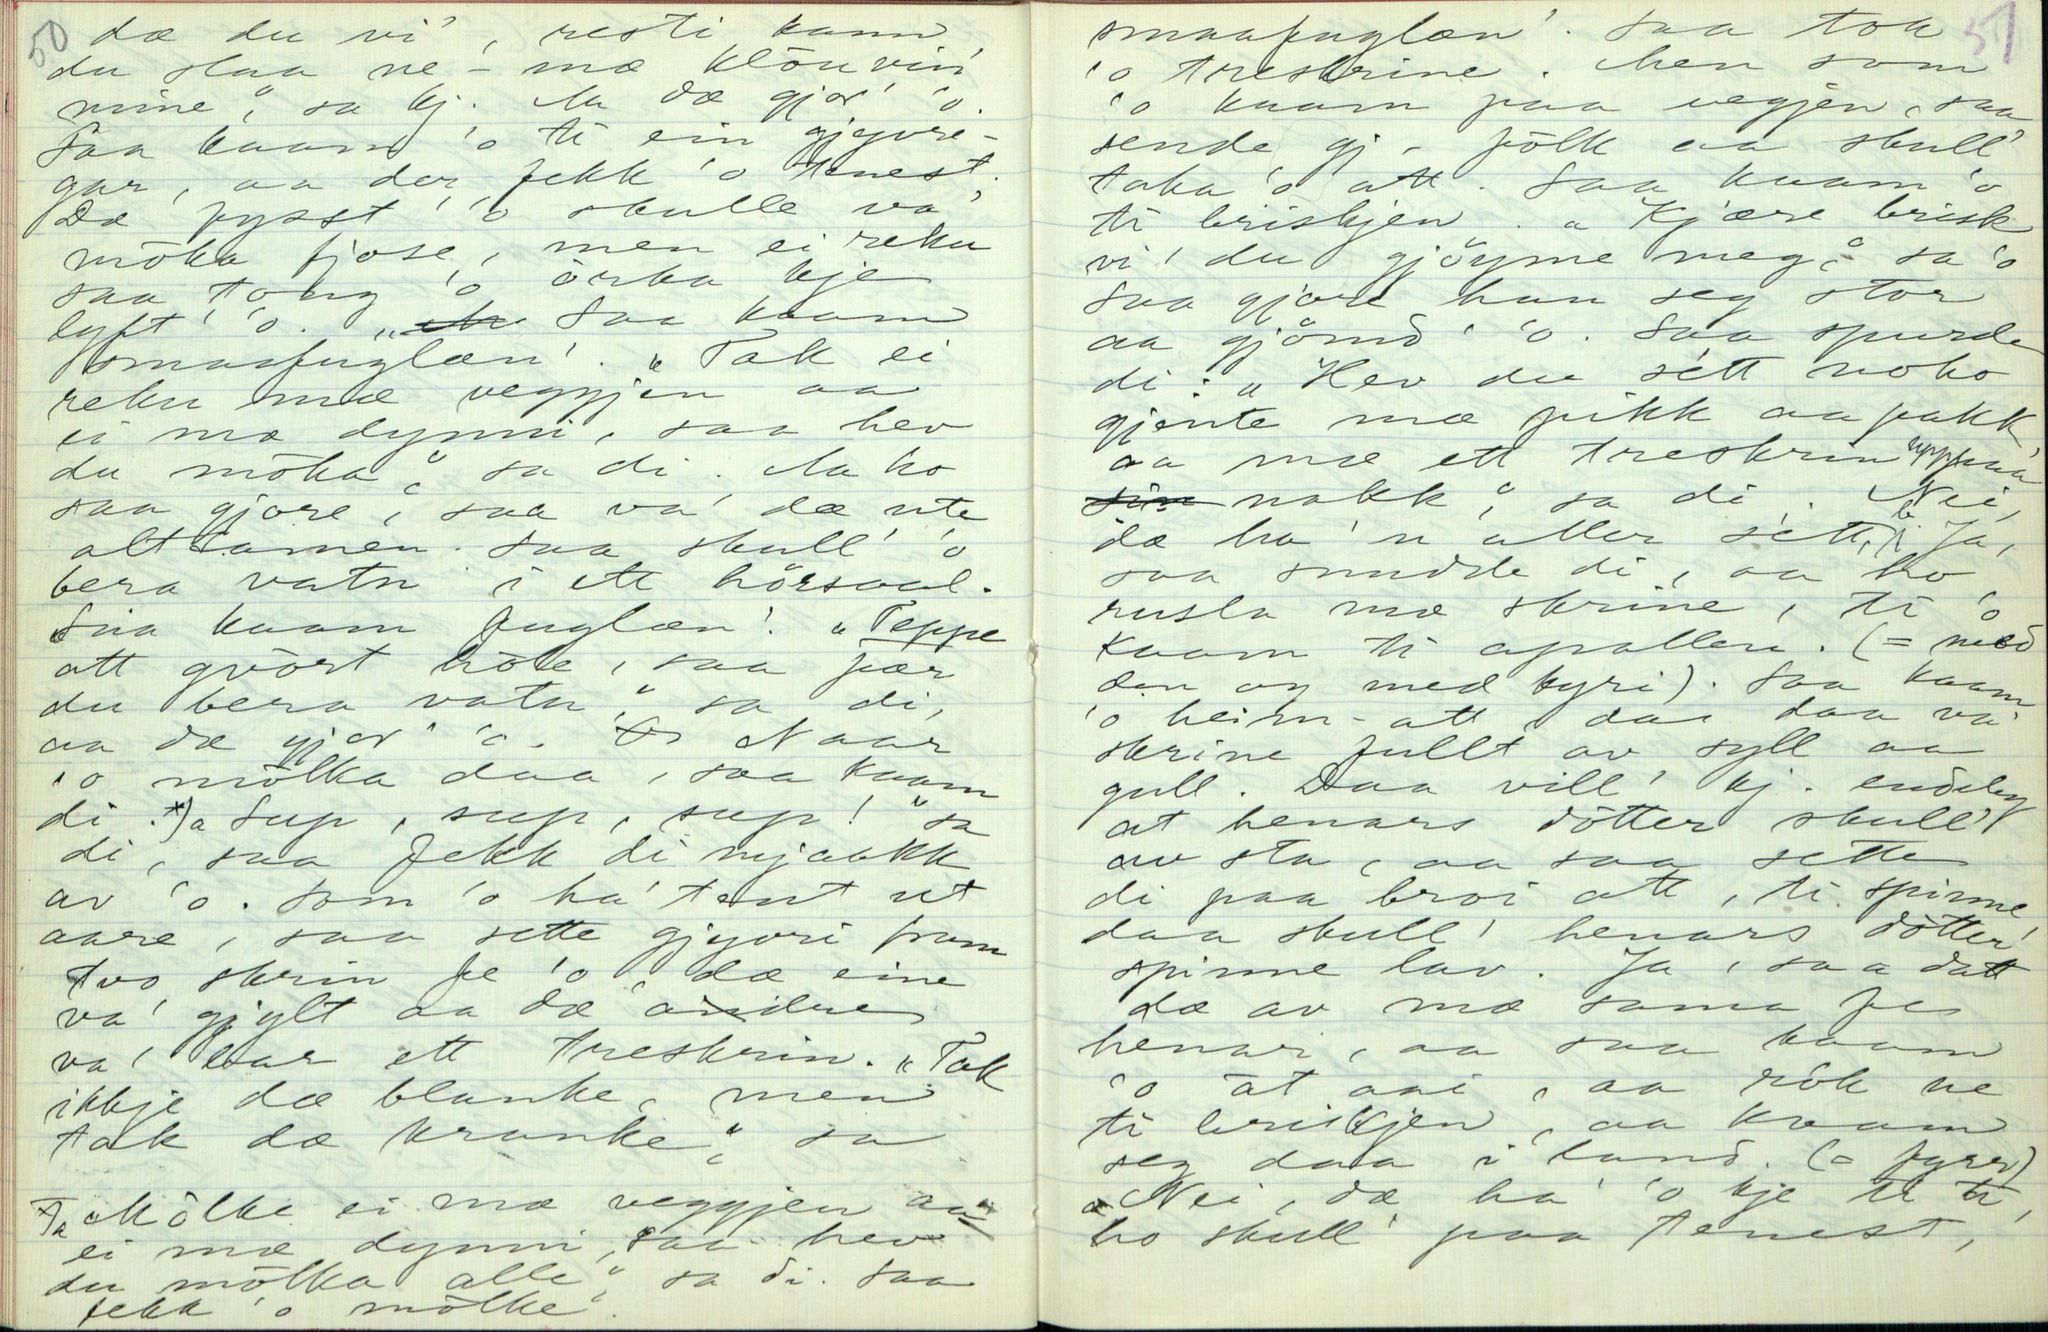 50
dæ du vi', resti kann
du slaa ne - mæ klöuvin'
mine", sa kj. Aa dæ gjor' 'o.
Saa kaam 'o ti ein gjyvre-
gar', aa der fekk 'o tenest.
Dæ fysst' 'o skulle va'
möka fjose, men ei reku
saa tong 'o örka kje
lyft' 'o. Saa kaam
smaafuglæn'. "Tak ei
reku mæ veggjen aa
ei mæ dynni, saa hev
du möka", sa di. Aa ho
saa gjore, saa va' dæ ute
alt samen. Saa skull' 'o
bera vatn i ett hörsaal.
Saa kaam fuglæn'. "Teppe
att gvört höle, saa fær
du bera vatn", sa di,
aa dæ gjor' 'o. Naar
'o mölka daa, saa kaam
di. *) "Sup, sup, sup!" sa
di, saa fekk di mjaakk
av 'o. Som 'o ha' tent ut
aare, saa sette gjyvri fram
tvo skrin fe 'o dæ eine
va' gjylt aa dæ andre
va' bar ett treskrin. "Tak
ikkje dæ blanke, men
tak dæ kranke", sa
*) "Mölke ei mæ veggjen aa
ei mæ dynni, saa hev
du mölka alle", sa di. Saa
fekk 'o mölke.
51
smaafuglæn'. Saa tok
'o treskrine. Men som
'o kaam paa vegjen, saa
sende gj. fölk aa skull'
taka 'o att. Saa kaam 'o
ti briskjen. "Kjære brisk
vi' du gjöyme meg", sa 'o
Saa gjore han seg stor
aa gjömd' 'o. Saa spurde
di: "Hev du sétt noko
gjente mæ pikk aa pakk
aa mæ ett treskrin uppaa
nakk", sa di. Nei,
dæ ha' 'n aller sétt. Ja,
saa snudde di, aa ho
rusla mæ skrine, ti 'o
kaam ti apallen. (= med
den og med kyri). Saa kaam
'o heim-att, daa va'
skrine fullt av syll aa
gull. Daa vill' kj. endeleg
at henars dötter skull'
av sta, aa saa sette
di paa broi att, ti spinne
daa skull' henars dötter
spinne lav. Ja, saa datt
dæ av mæ sama fe
henar, aa saa kaam
'o åt aai, aa rök ne
ti briskjen, aa kaam
seg daa i land. (= fyrr)
"Nei, dæ ha' 'o kje ti ti,
ho skull' paa tenest,